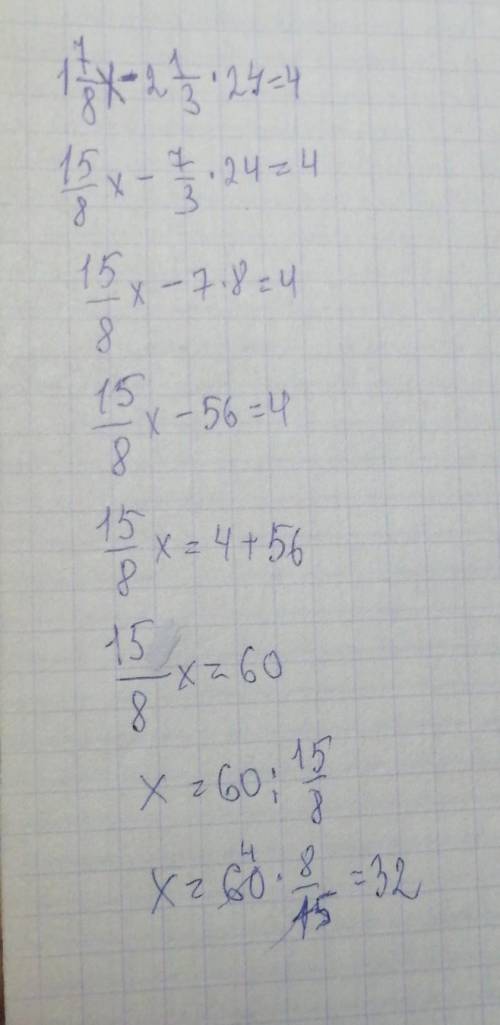 1 7/8 x - 2 1/3 · 24 = 4
15/8 x - 7/3 · 24 = 4
15/8 x - 7 · 8 = 4
15/8 x - 56 = 4
15/8 x = 4 + 56
15/8 x = 60
x = 60 : 15/8
x = 60 4 · 8/15 = 32